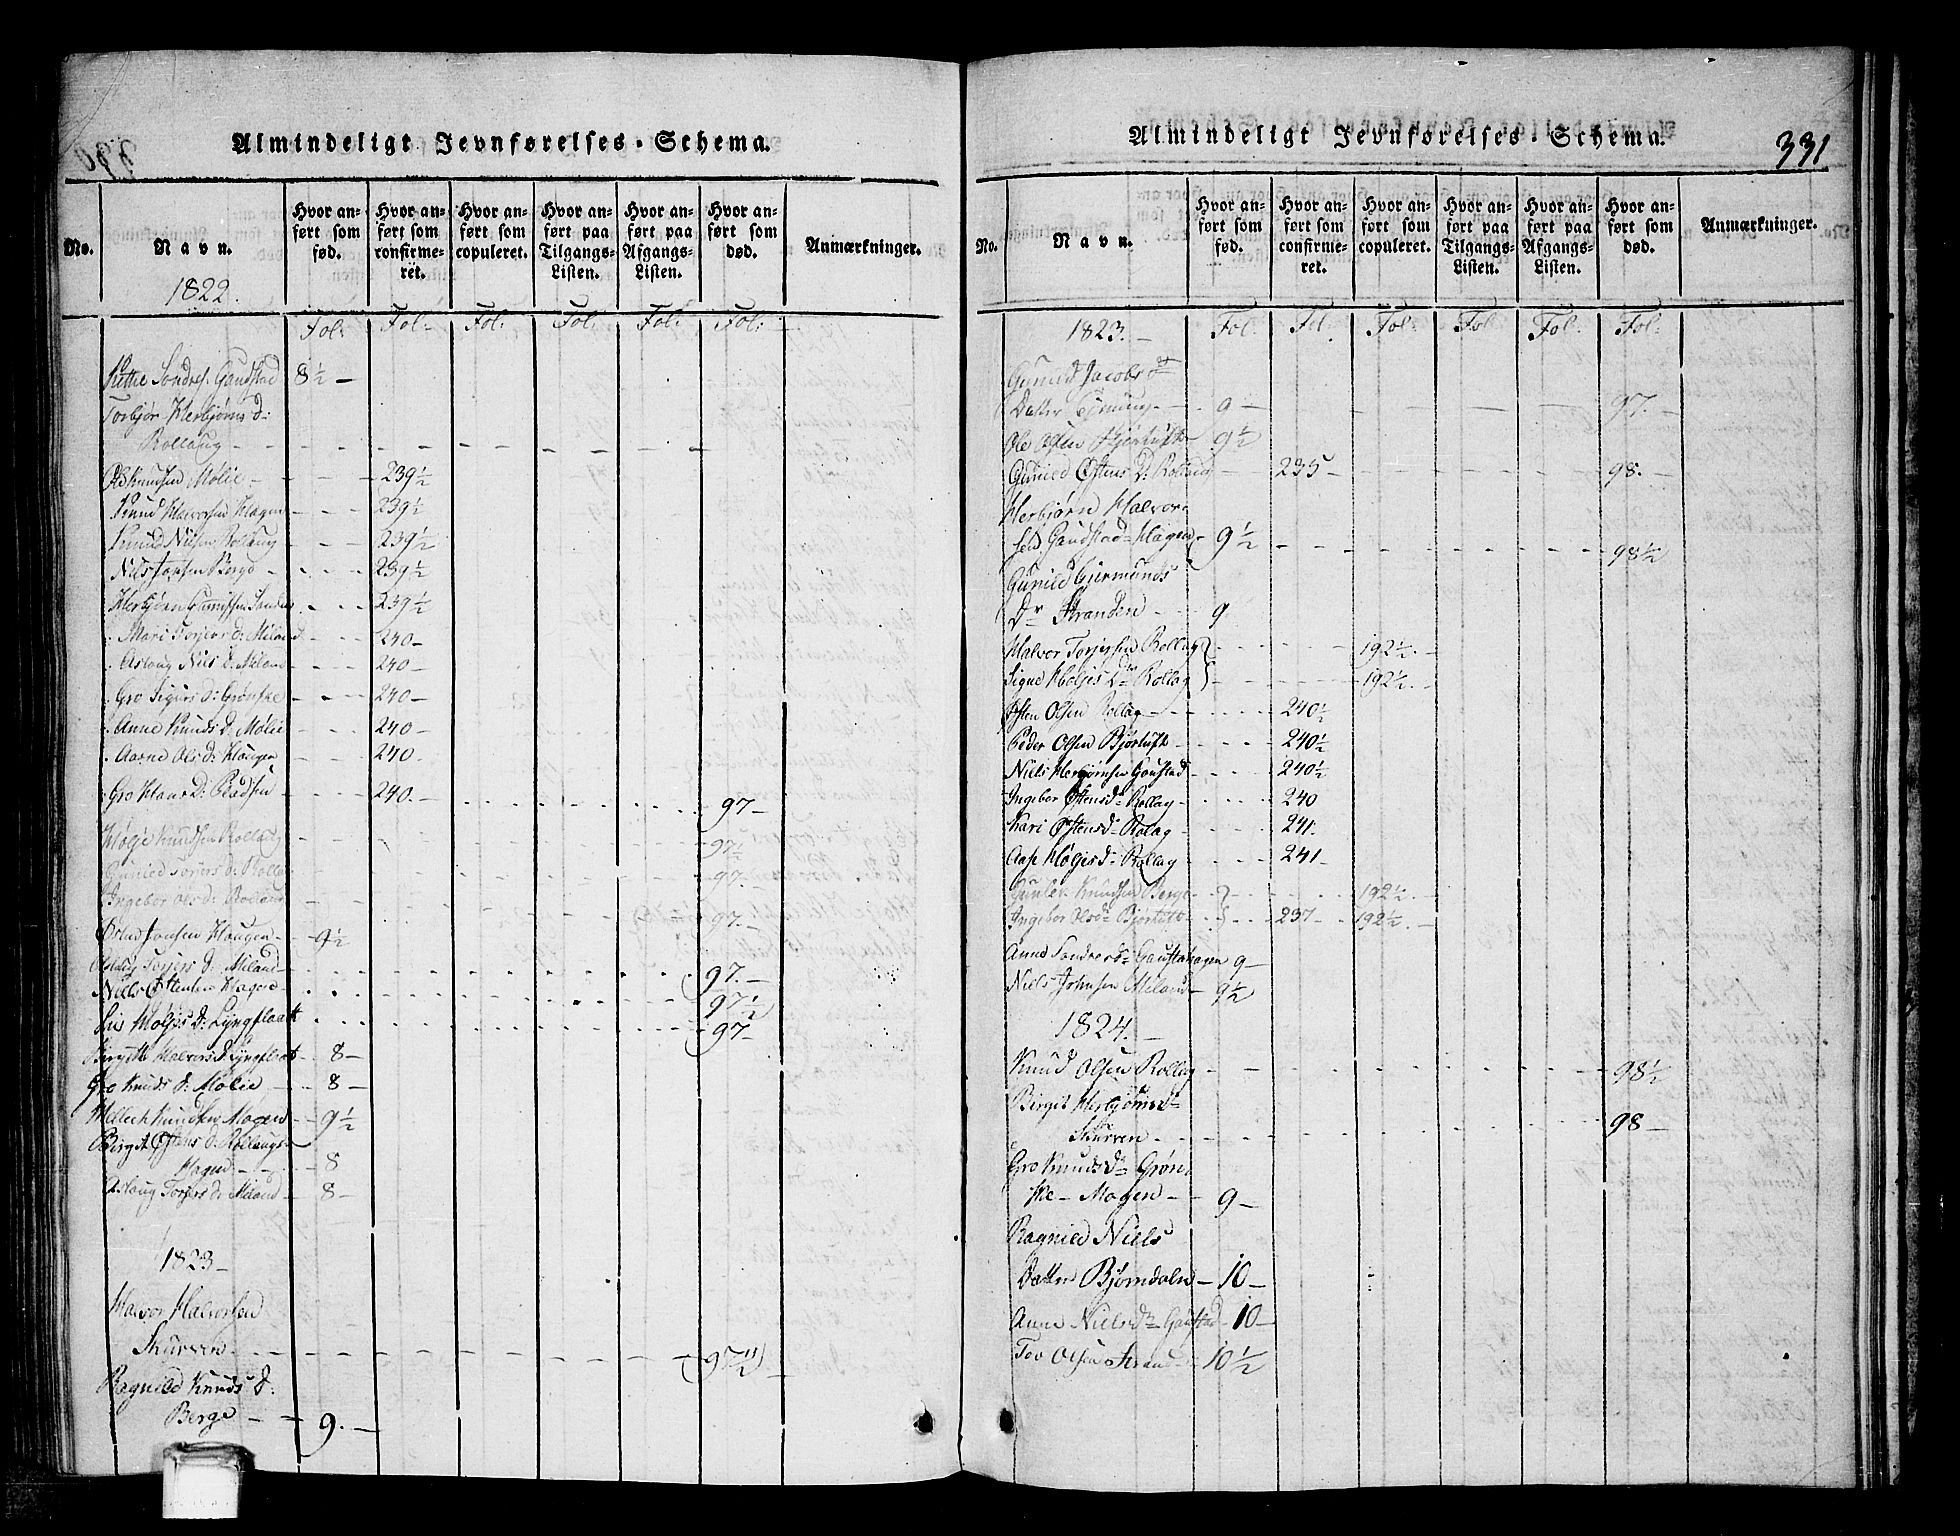 Almindeligt Jevnførelses-Schema.
No.
Navn.
Hvor anført som fød.
Hvor anført som confirmeret.
Hvor anført som copuleret.
Hvor anført paa Tilgangs-Listen.
Hvor anført paa Afgangs-Listen.
Hvor anført som død.
Anmærkninger.
1822.
Fol: Fol: Fol: Fol: Fol: Fol:
Sondres. Gaustad 8½ —
Torbjør Herbjørns d:
Rollaug
Ole Knudsen Mølie — 239½
Knud Halvorsen Hagen 239½
Knud Nilsen Rollaug 239½
Nils Berge 239½
Herbjørn 239½
Mari Torjers d: Miland 240 —
Aslaug Nils d: Miland 240 —
Gro Sigurs d: Grønske 240 —
Anne Knuds d: Mølie 240 —
Aarne Ols d: Haugen 240
Gro d: Pladsen 240. — 97 —
Knudsen Rollaug 97½
Gunild Torjers d: Rollau 97.
Ingebor Ols d: Rollaug 97. —
Jonsen Haugen 9½
Aslaug Torjers d: Miland 97. —
Niels Østensen Hagen 97½
Siri Holjes d: Lyngflaatt 97 —
Birgitte Halvors d: Lyngflaat 8 —
Gro Knuds d: Mølie 8 —
Knudsen Mogen 9½
Birgit Østens d: Rollaugs
Hagen 8
Aslaug Torjers d: Miland 8 —
1823 —
Halvor Halvorsen
Skurven (97½)
Ragnild Knuds d:
Berge 9. —
Almindeligt Jevnførelses-Schema.
331
No.
Navn.
Hvor anført som fød.
Hvor anført som confirmeret.
Hvor anført som copuleret.
Hvor anført paa Tilgangs-Listen.
Hvor anført paa Afgangs-Listen.
Hvor anført som død.
Anmærkninger.
1823. —
Fol: Fol: Fol: Fol Fol: Fol:
Gunild Jacobs
Datter 9 — 97. —
Ole Olsen Bjørtuft 9½
Gunild Østens D: Rollaug 235 — 98. —
Herbjørn Halvor-
sen Gaustad-Hagen 9½ 98½
Gunild Gjermunds
Dr Stranden 9
Halvor Torjersen Rollag 192½. —
Signe Holjes Dr Rollag 192½. —
Østen Olsen Rollag 240½
Peder Olsen Bjørtuft 240½
Niels Herbjørnsen Gaustad 240½
Ingebor Østensd: Rollag 240
Kari Østensd: Rolag 241.
Aase Holjesd: Rollag 241 —
Gunlek Knudsen Berge 192½ —
Ingebor Olsd: Bjørtuft 237 — 192½.
Anne Sondresd: Gaustahagen 9 —
Niels Johnsen Miland 9½
1824. —
Knud Olsen Rollag 98½
Birgit Herbjørnsd:
Skurven 98 —
Gro Knudsd: Grøn-
ske-Mogen 9 —
Ragnild Niels
Datter Bjørndalen 10 —
Anne Nielsd: Gaustad 10 —
Tov Olsen Strand 10½